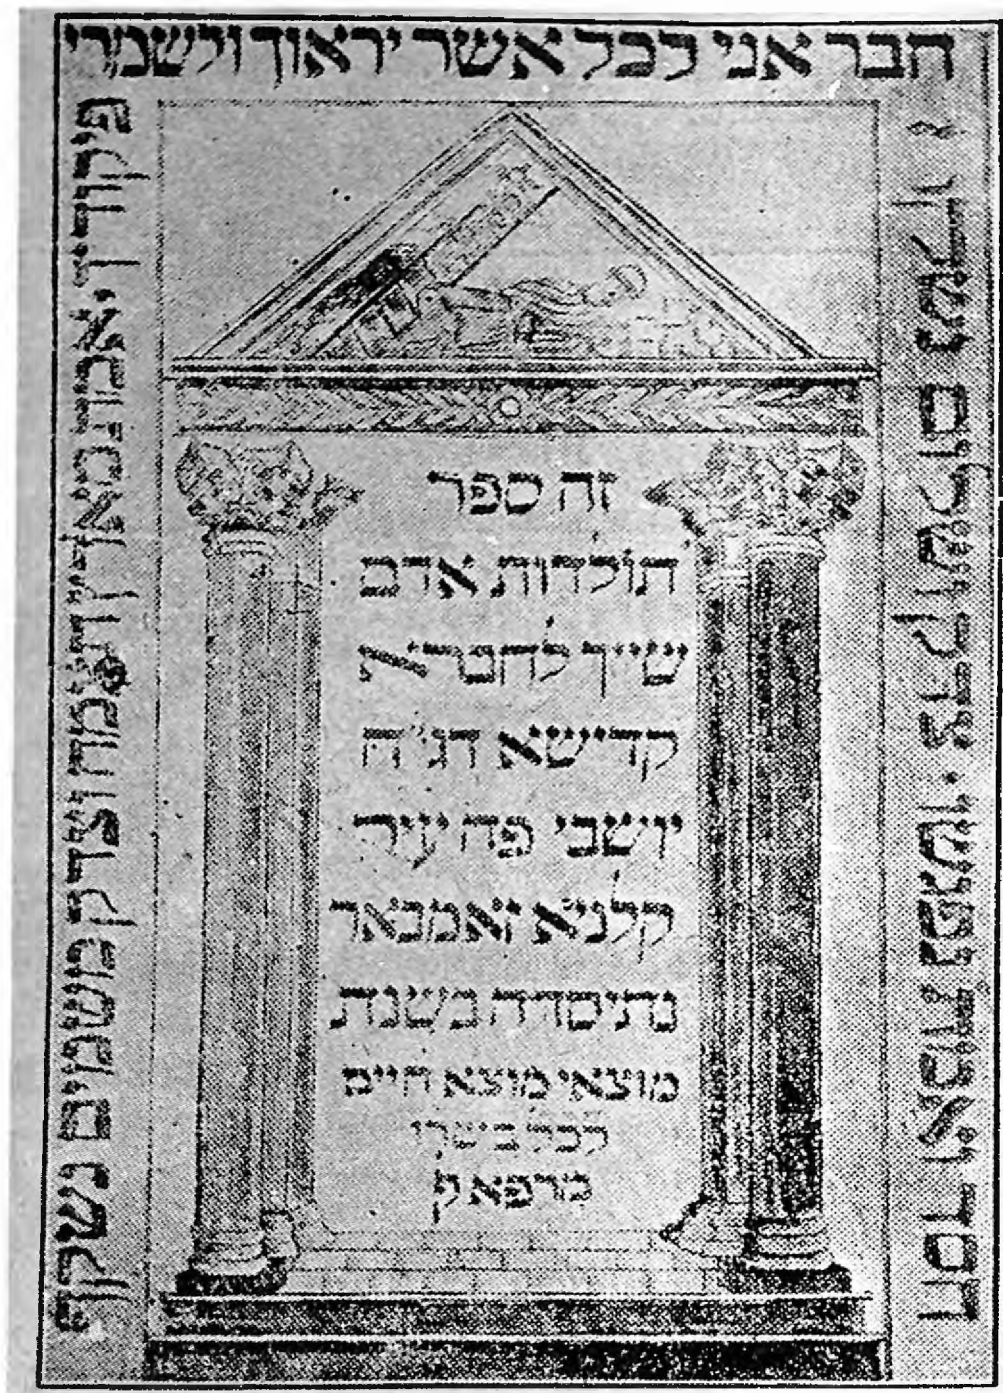 חבר אני לכל אשר יראוך ולשמרי
פיקודיך. אמת מארץ תצמח וצדק משמים נשקף
חסד ואמת נפגשו. צדק ושלום נשקו
זה ספר
תולדות אדם
שייך לחברא
קדישא דג״ח
יושבי פה עיר
קלניא זאמבאר
נתיסדה בשנת
מוצאי מוצא חיים
לכל בשרו
מרפא